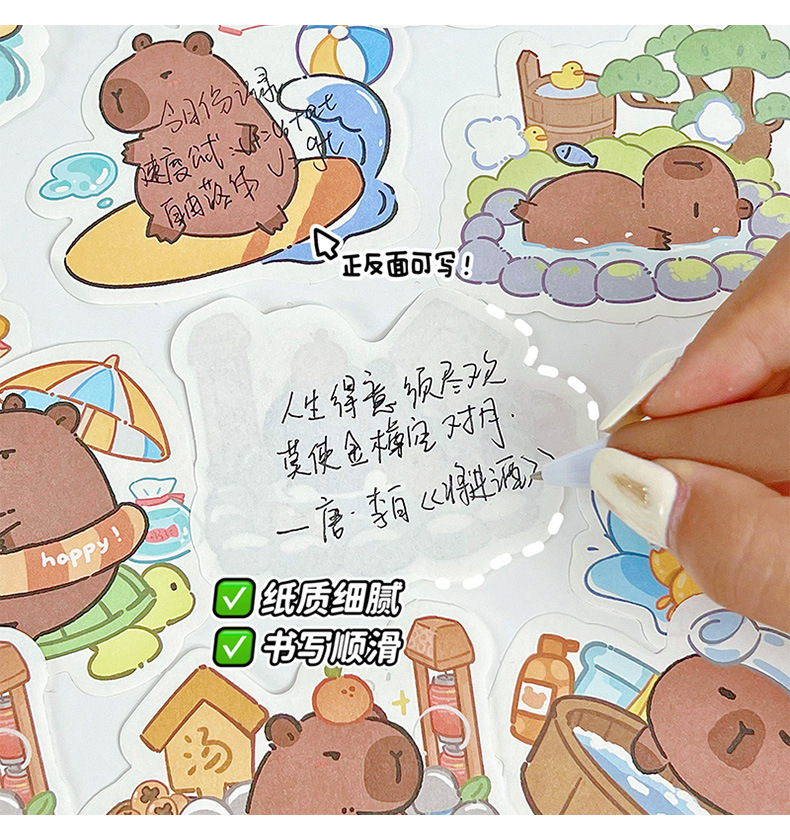 今日份记录
速度公式：
自由落体
正反面可写！
人生得意须尽欢
莫使金樽空对月.
—唐·李白《将进酒》
happy!
✅ 纸质细腻
✅ 书写顺滑
汤